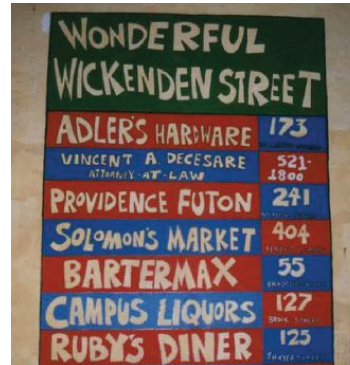 WONDERFUL
WICKENDEN STREET
ADLER'S HARDWARE 173
VINCENT A. DECESARE 521-
ATTORNEY-AT-LAW 1800
PROVIDENCE FUTON 241
SOLOMON'S MARKET 404
BARTERMAX 55
CAMPUS LIQUORS 127
BROOK STREET
RUBY'S DINER 125
THAYER STREET